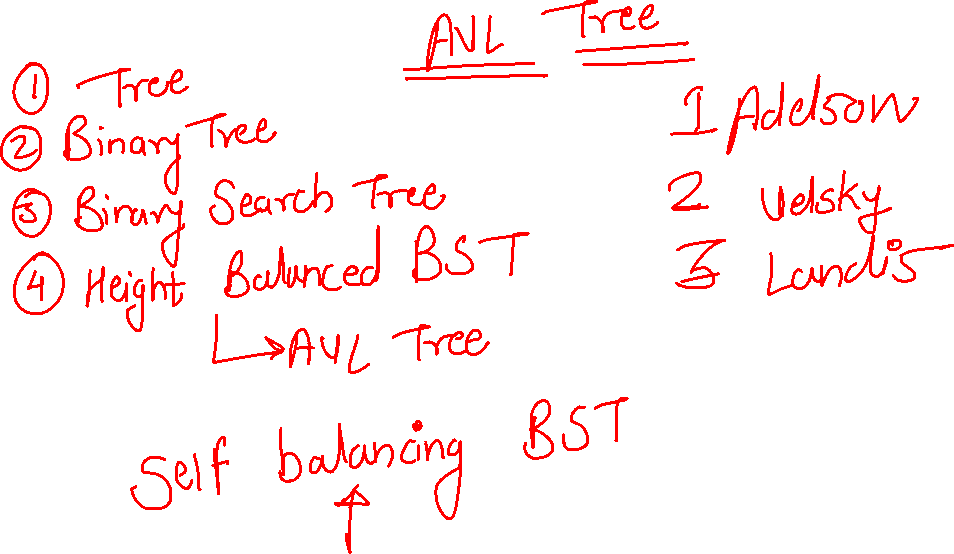 AVL Tree
① Tree
② Binary Tree
③ Binary Search Tree
④ Height Balanced BST
↳ AVL Tree
1 Addson
2 Velsky
3 Landis
Self balancing BST